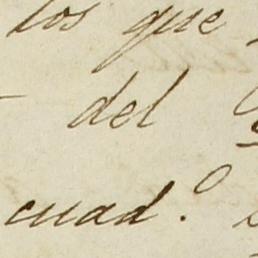 los que
del
cuad.º